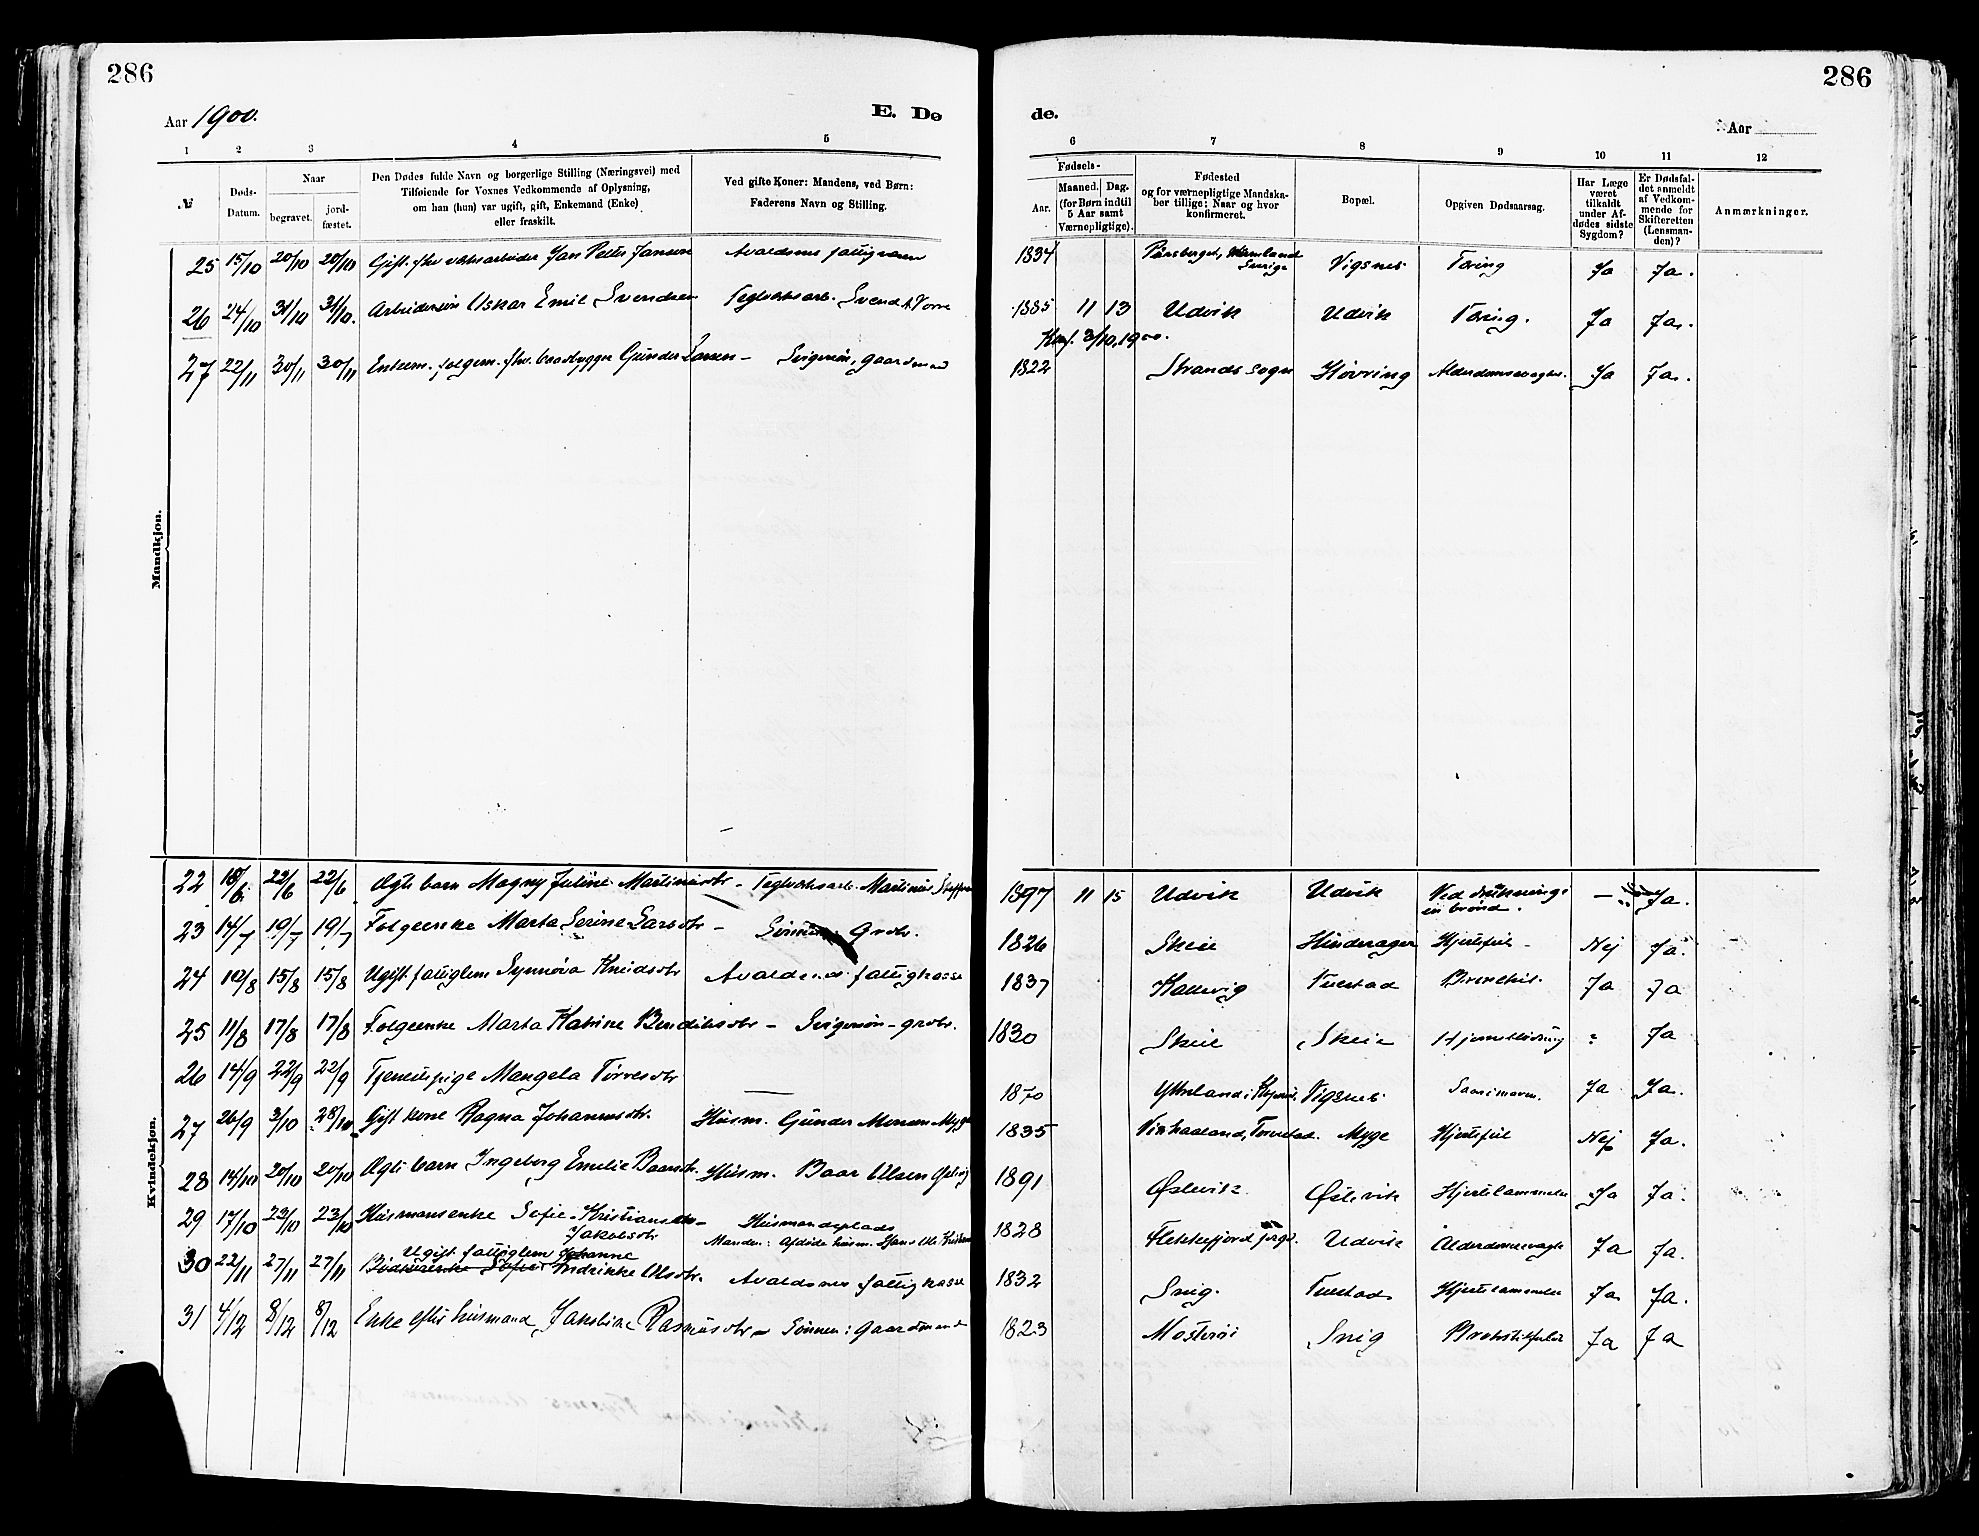 286
286
Aar 1900.
E. Dø
de.
Aar
1 2 3 4 5
6 7 8 9 10 11 12
№
Døds-Datum.
Naar
begravet.
jord-fæstet.
Den Dødes fulde Navn og borgerlige Stilling (Næringsvei) med
Tilføiende for Voxnes Vedkommende af Oplysning,
om han (hun) var ugift, gift, Enkemand (Enke)
eller fraskilt.
Ved gifte Koner: Mandens, ved Børn:
Faderens Navn og Stilling.
Fødsels-
Aar.
Maaned. Dag.
(for Børn indtil
5 Aar samt
Værnepligtige).
Fødested
og for værnepligtige Mandska-
ber tillige; Naar og hvor
konfirmeret.
Bopæl.
Opgiven Dødsaarsag.
Har Læge
været
tilkaldt
under Af-
dødes sidste
Sygdom?
Er Dødsfal-
det anmeldt
af Vedkom-
mende for
Skifteretten
(Lensman-
den)?
Anmærkninger.
Mandkjøn.
25 15/10 20/10 20/10 Gift. fhv. Jan Petter Jansen Avaldsnes fattigvæsen 1834 Värmland Sverige Vigsnes Tæring Ja Ja.
26 24/10 31/10 31/10. Arbeidersøn Oskar Emil Svendsen Teglverksarb. Svend 1885 11 13 Udvik Udvik Tæring. Ja Ja.
Konf. 3/10, 1900.
27 22/11 30/11 30/11 Enkem. folgem. fhv. baadbygger Gunder Larsen – Svigersøn, gaardmand 1822 Strands sogn Høvring Alderdomssvaghed. Ja Ja.
Kvindekjøn.
22 18/6 22/6 22/6 Ægte barn Magny Juline Martinusdtr – Teglverksarb. Martinus 1897 11 15 Udvik Udvik Ved drukning i en brønd. – Ja.
23 14/7 19/7 19/7 Folgeenke Marta Serine Larsdtr – Sønnen Grdbr. 1826 Skeie Hinderager Hjertefeil – Nej Ja.
24 10/8 15/8 15/8 Ugift fattiglem Synnøva Knudsdtr Avaldsnes fattigkasse 1837 Kallevig Tuestad Bronchit. Ja Ja
25 11/8 17/8 17/8 Folgeenke Marta Katrine Bendiksdtr – Svigersøn – grdbr. 1830 Skeie Skeie Hjerneblødning Ja
26 14/9 22/9 22/9 Tjenestepige Mangela Tørresdtr — 1870 Vigsnes Ja Ja.
27 26/9 3/10 28/10 Gift kone Ragna Johannesdtr. Husm. Gunder Monsen Myge 1835 Torvestad. Myge Hjertefeil Nej Ja.
28 14/10 20/10 20/10 Ægte barn Ingeborg Emelie Baarsdtr. Husm. Baar Olsen 1891 Østevik. Østevik Hjertelammelse Ja Ja.
29 17/10 23/10 23/10 Husmandsenke Sofie Jakobsdtr Husmandsplads
Manden: Afdøde husm. 1828 Flekkefjord Udvik Alderdomssvaghed Ja Ja.
Ugift fattiglem Johanne
30 22/11 27/11 27/11 Indrikke Olsdtr. Avaldsnes fattigkasse 1832 Snig. Tuestad Hjertelammelse Ja Ja.
31 4/12 8/12 8/12 Enke efter husmand, Jakobine Rasmusdtr – Sønnen: Gaardmand 1823 Mosterøi Snig Ja Ja